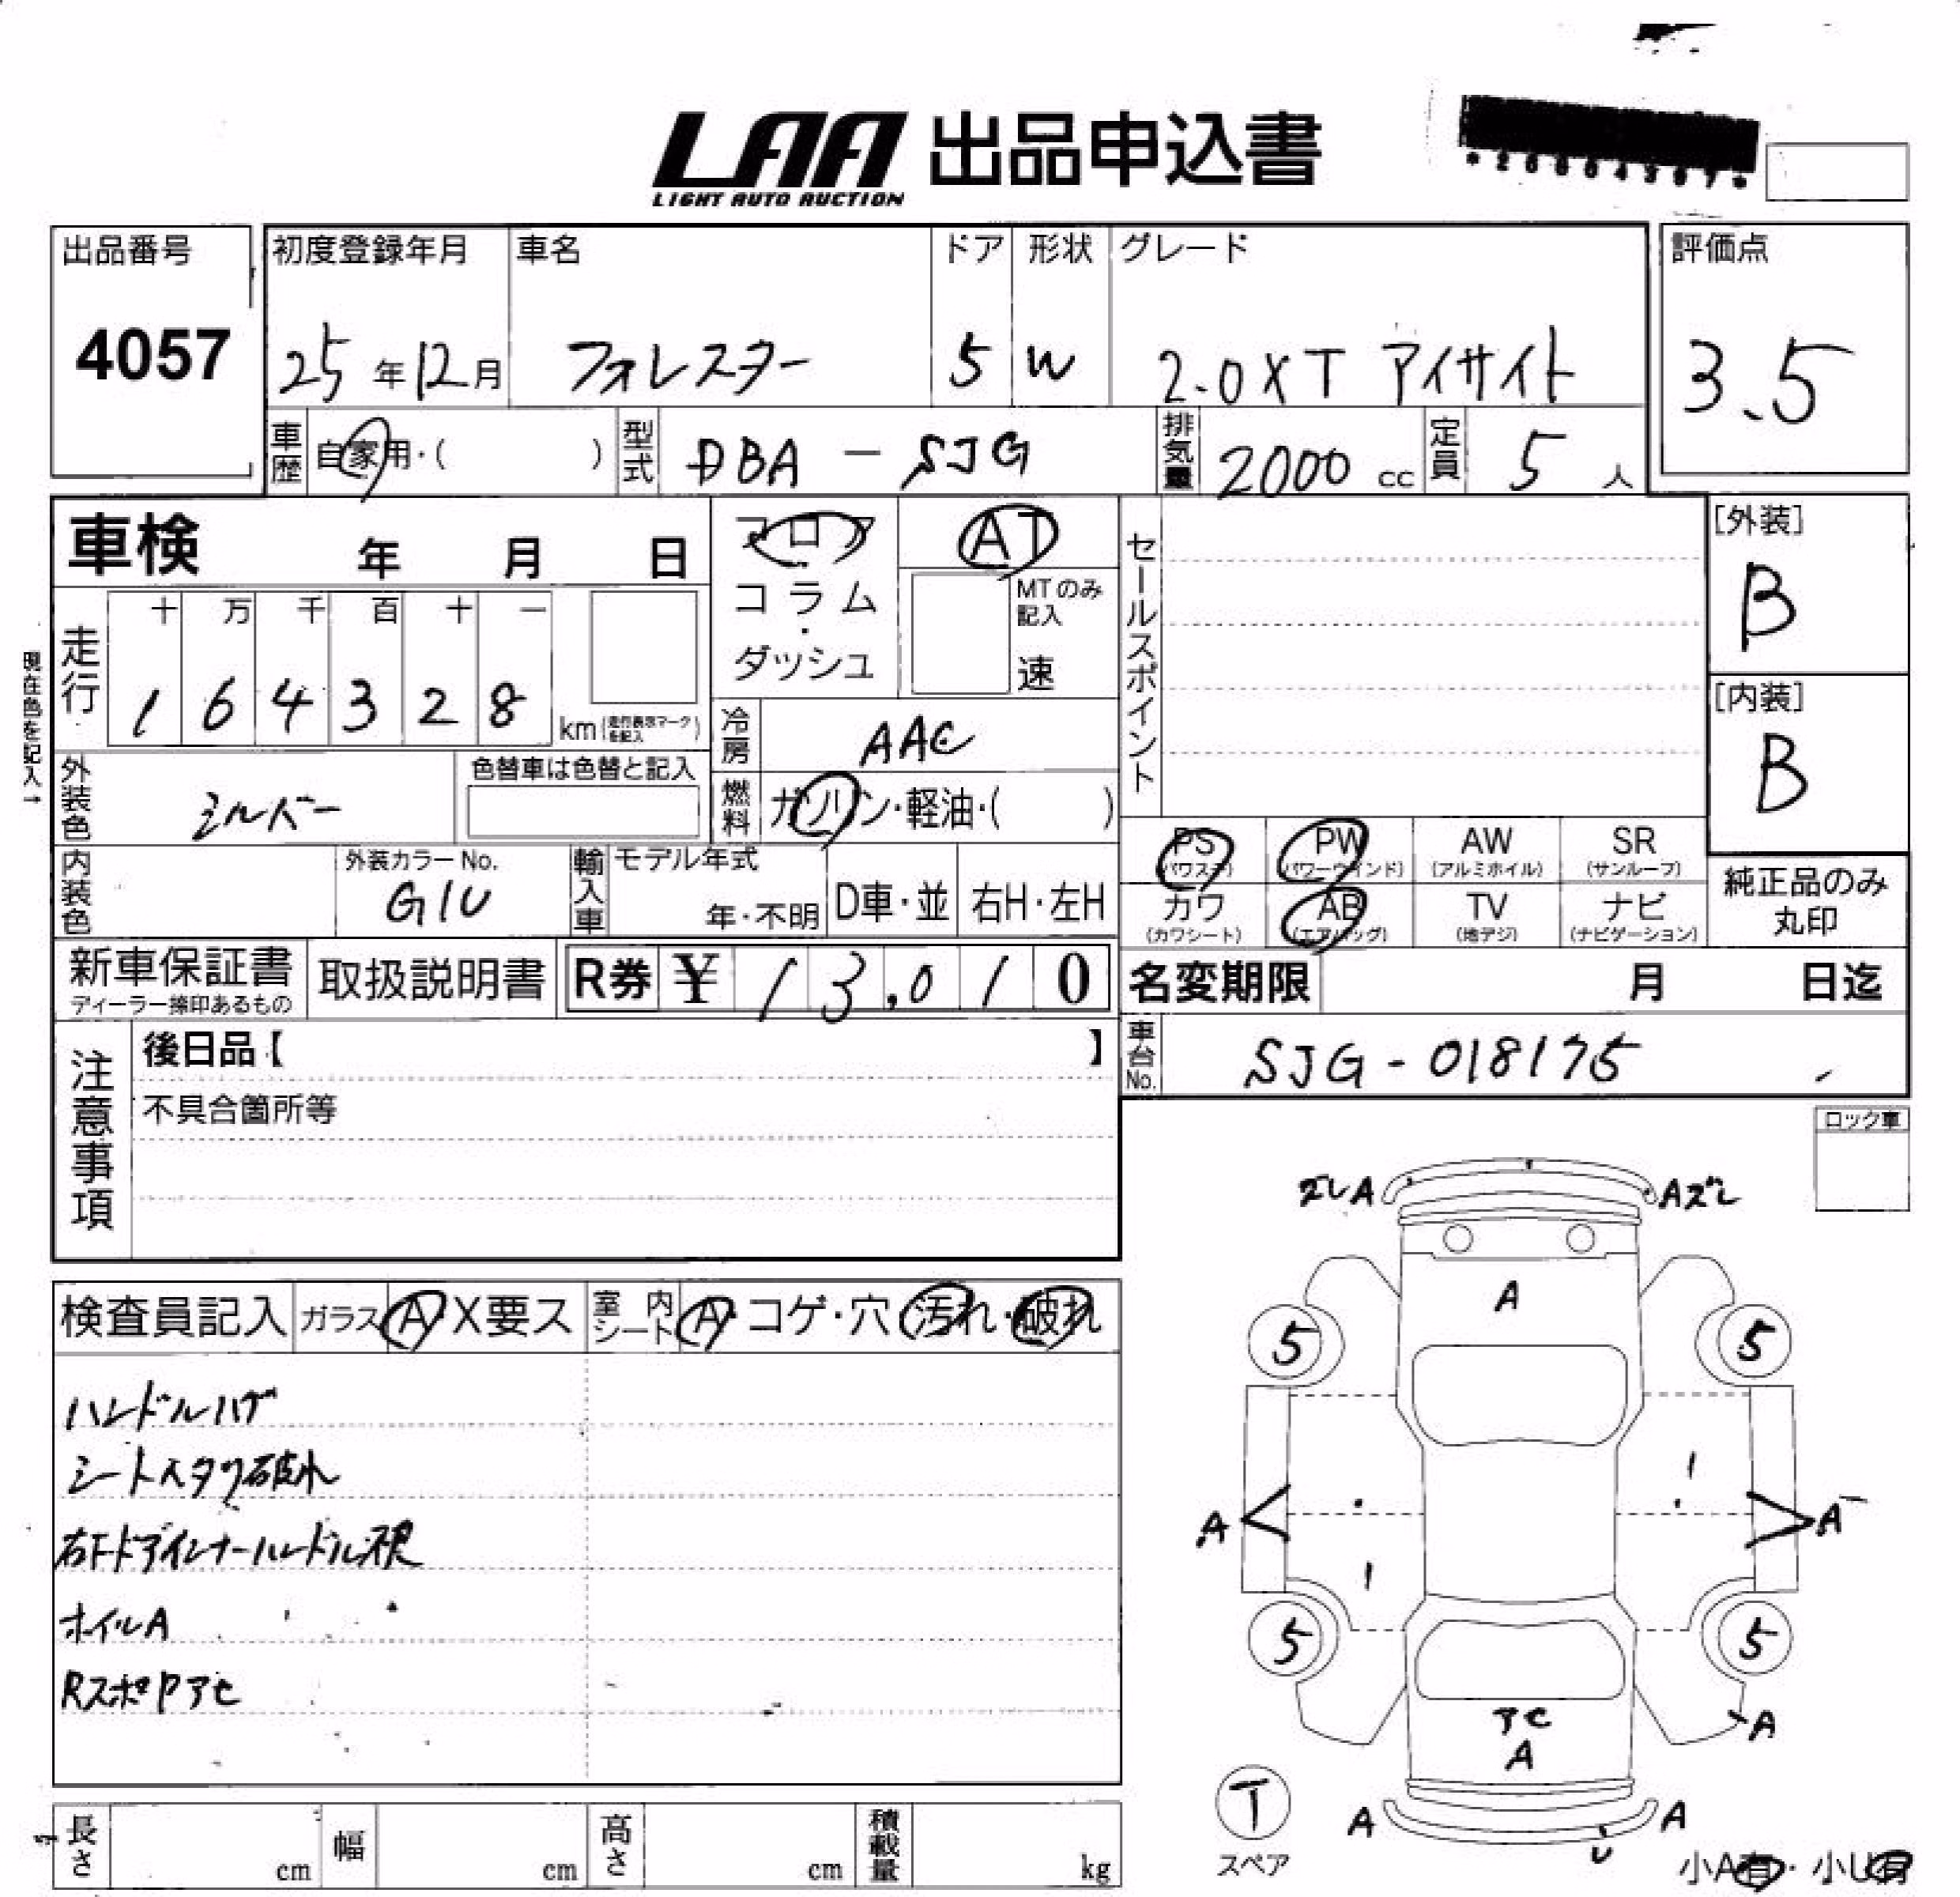 LAA 出品申込書
LIGHT AUTO AUCTION
出品番号
4057
初度登録年月
25年12月
車名
フォレスター
ドア
5
形状
W
グレード
2.0XT アイサイト
評価点
3.5
車歴
自家用・( )
型式
DBA-SJG
排気量
2000 cc
定員
5 人
車検 年 月 日
フロア
コラム
・
ダッシュ
AT
MTのみ記入
速
セールスポイント
[外装]
B
[内装]
B
現在色を記入→
走行
十 万 千 百 十 一
1 6 4 3 2 8
km(走行表示マークを記入)
冷房
AAC
外装色
シルバー
色替車は色替と記入
燃料
ガソリン・軽油・( )
PS (パワステ)
PW (パワーウインド)
AW (アルミホイル)
SR (サンルーフ)
カワ (カワシート)
AB (エアバッグ)
TV (地デジ)
ナビ (ナビゲーション)
純正品のみ
丸印
内装色
外装カラーNo.
G1U
輸入車
モデル年式
年・不明
D車・並
右H・左H
新車保証書
ディーラー捺印あるもの
取扱説明書
R券 ¥ 13,010
名変期限 月 日迄
車台No.
SJG-018175
注意事項
後日品【 】
不具合箇所等
ロック車
ズレA
Aズレ
A
5
5
A
A
5
5
アセ
A
A
A
A
U
T
スペア
小A有・小U有
検査員記入
ガラス A・X要ス
室内シート A・コゲ・穴・汚れ・破れ
ハンドルハゲ
シートスタワ破れ
右Fドアインナーハンドル不良
ホイルA
RスポPアセ
長さ cm
幅 cm
高さ cm
積載量 kg